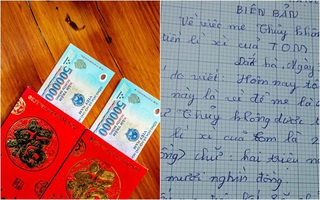 500000
500000
BIÊN BẢN
Về việc mẹ Thủy không
tiền lì xì của TOM
do viết: Hôm nay tô
này là vì để mẹ lì c
? Thủy không được t
lì xì của tom là 2
chữ: hai triệu
mươi nghìn đồng.